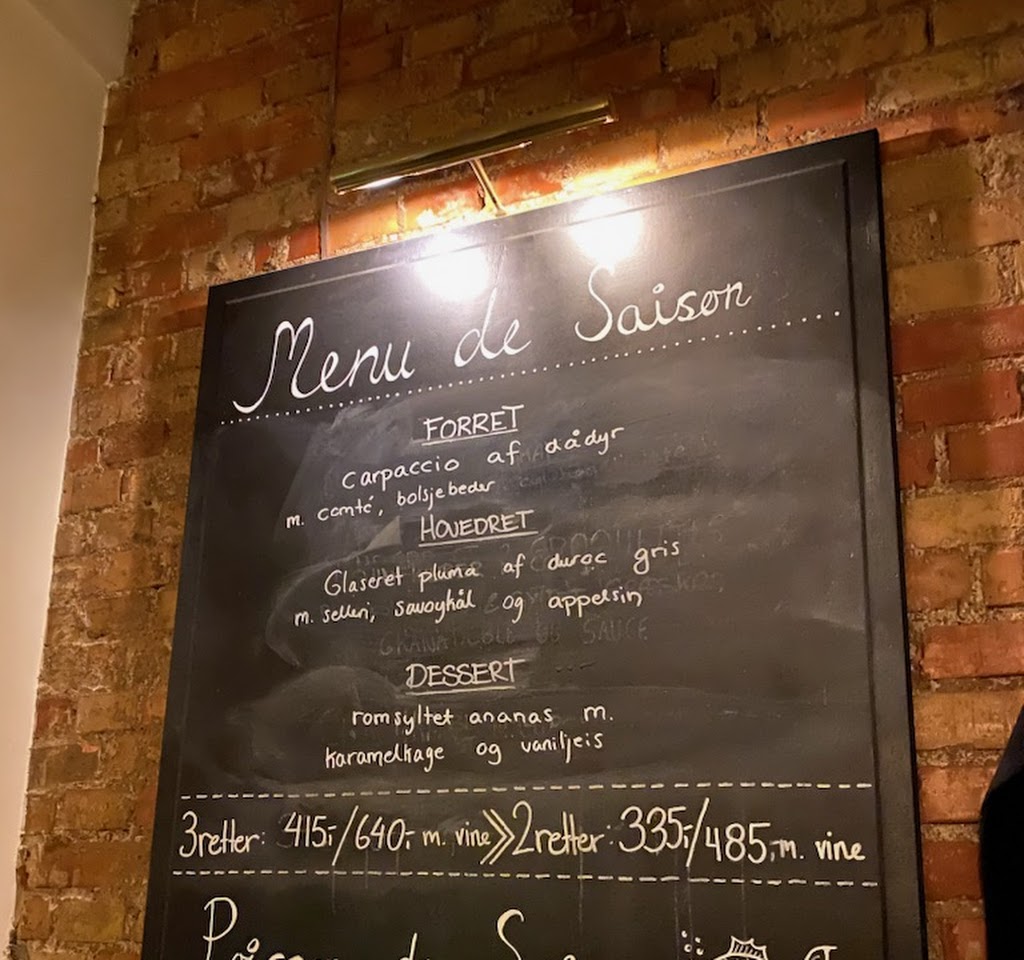 Menu de Saison
FORRET
carpaccio af dådyr
m. comté, bolsjebeder
HOVEDRET
Glaseret pluma af duroc gris
m. selleri, savoykål og appelsin
DESSERT
romsyltet ananas m.
karamelkage og vaniljeis
3retter: 415,-/640,- m. vine >> 2retter: 335,-/485,- m. vine